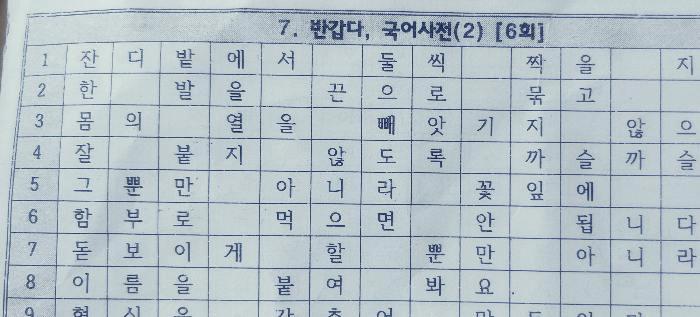 7. 반갑다, 국어사전(2) [6회]
1 잔디밭에서 둘씩 짝을 지
2 한 발을 끈으로 묶고
3 몸의 열을 빼앗기지 않으
4 잘 붙지 않도록 까슬까슬
5 그뿐만 아니라 꽃잎에
6 함부로 먹으면 안 됩니다
7 돋보이게 할 뿐만 아니라
8 이름을 붙여 봐요.